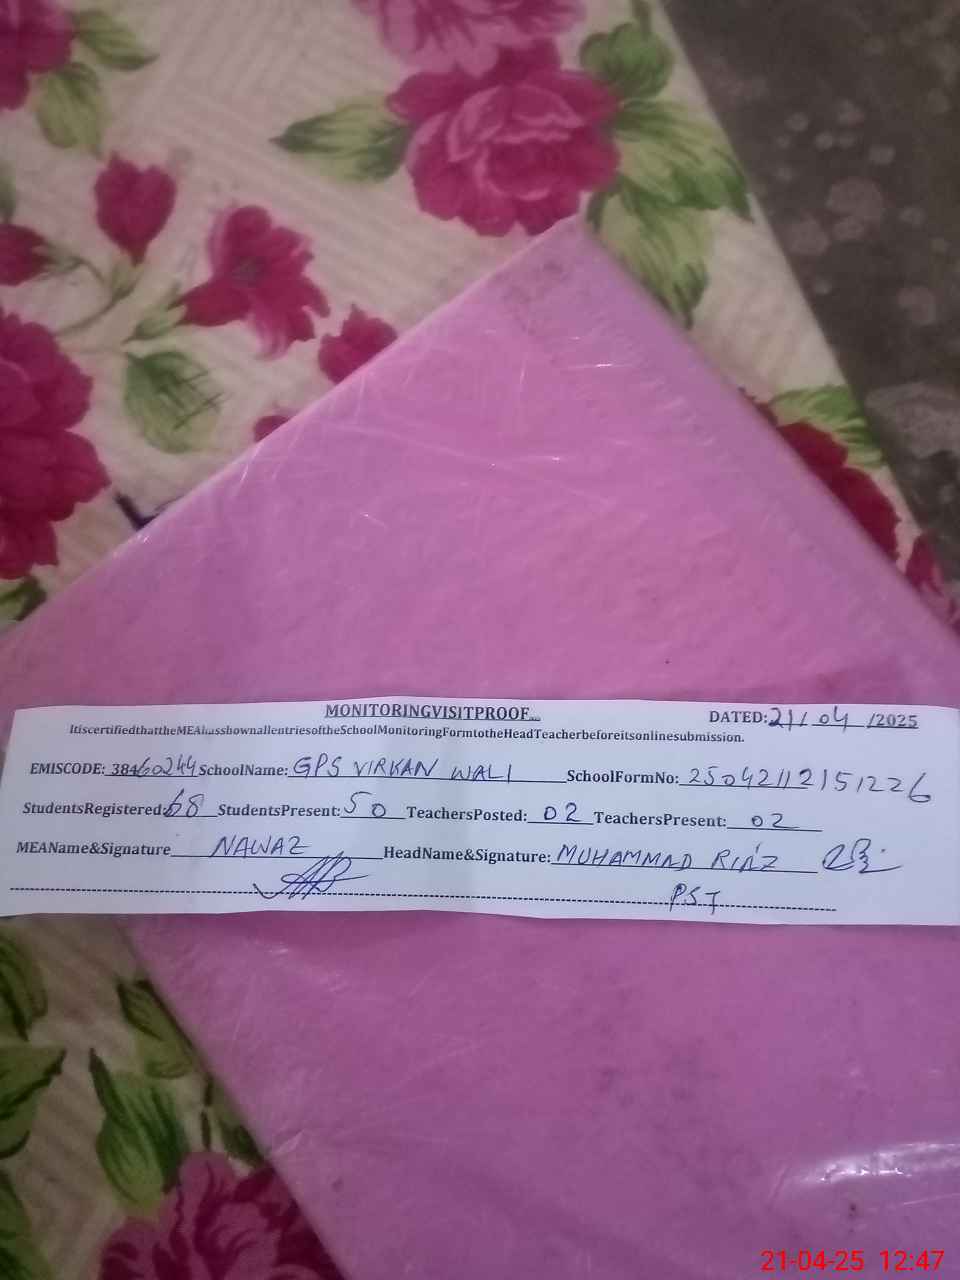 MONITORINGVISITPROOF...
DATED:21/04/2025
ItiscertifiedthattheMEAhasshownallentriesoftheSchoolMonitoringFormtotheHeadTeacherbeforeitsonlinesubmission.
EMISCODE: 38460244 SchoolName: GPS VIRKAN WALI SchoolFormNo: 25042112151226
StudentsRegistered:68 StudentsPresent:50 TeachersPosted: 02 TeachersPresent: 02
MEAName&Signature NAWAZ HeadName&Signature: MUHAMMAD RIAZ
PST
21-04-25 12:47